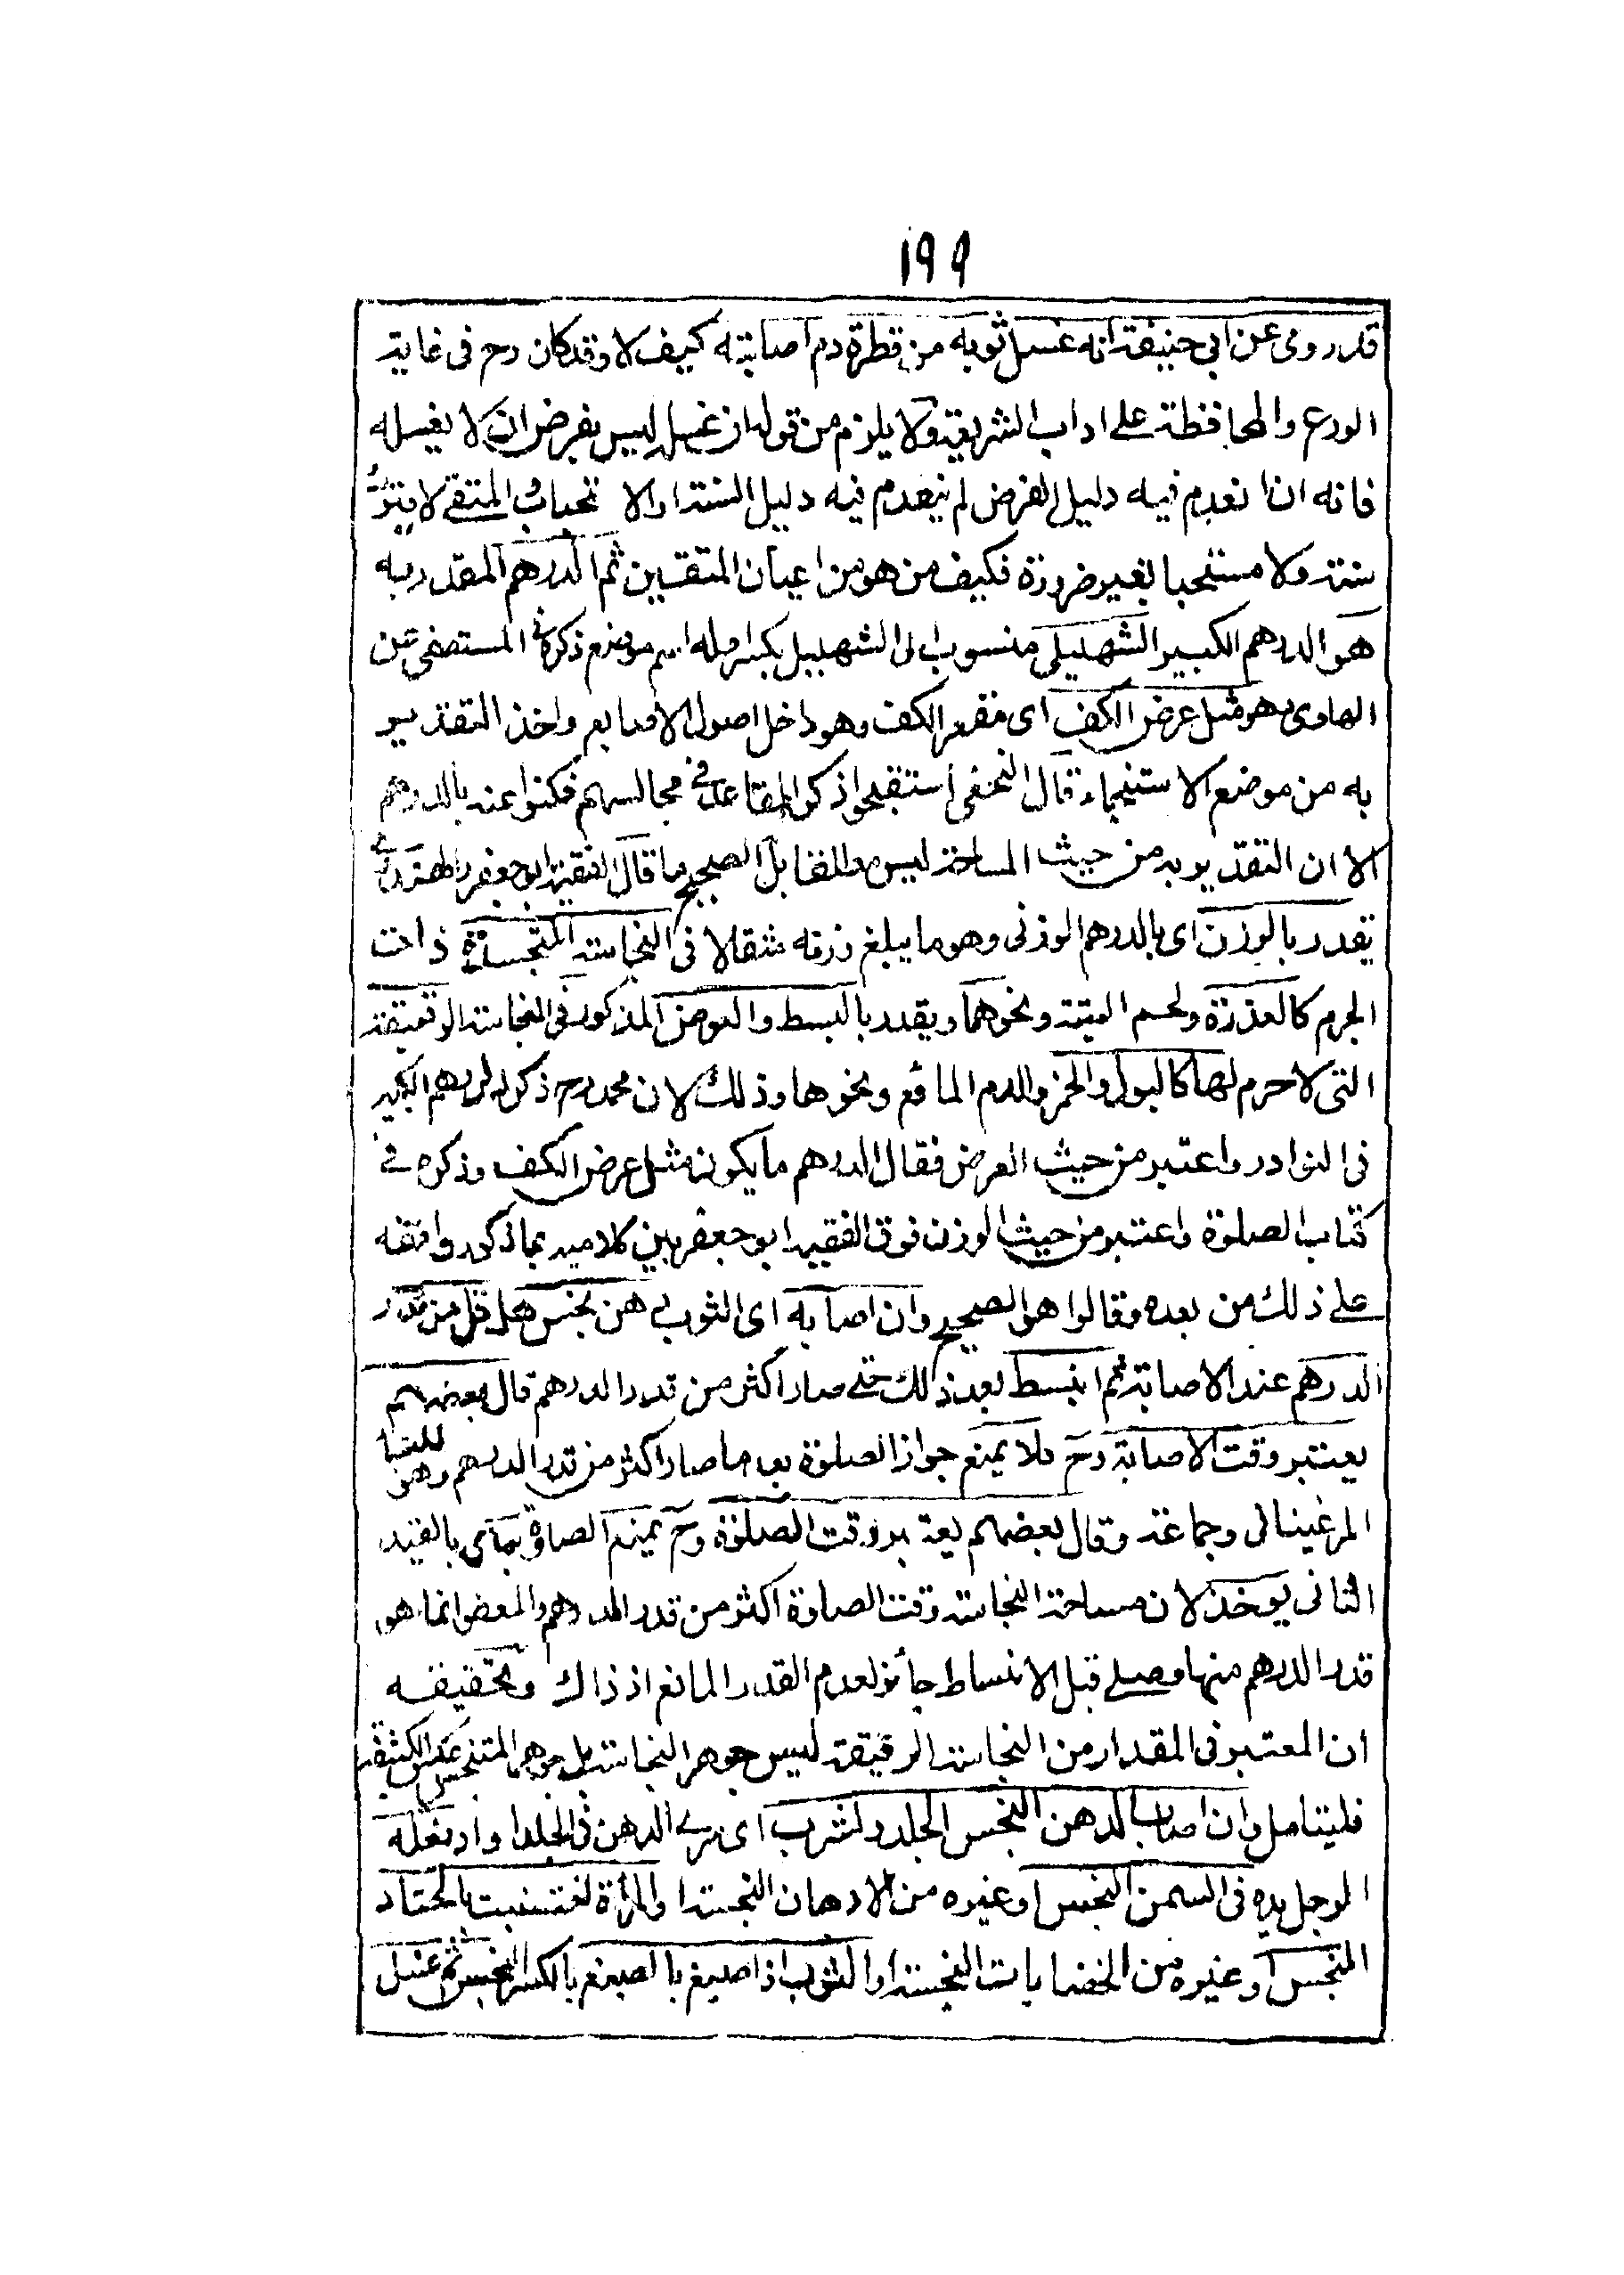 ١٩٩
قدروى عن ابى حنيفة انه غسل ثوبه من قطرة دم اصابته كيف لا وقد كان رح فى غاية
الورع والمحافظة على اداب الشريعة ولا يلزم من قوله ان غسله ليس بفرض ان لا يغسله
فانه اذا انعدم فيه دليل الفرض لم ينعدم فيه دليل السنة اوالا ستحباب المتقى لا يترك
سنة ولا مستحبا بغير ضرورة فكيف من هو من اعيان المتقين ثم الدرهم المقدر به
هو الدرهم الكبير الشهليلى منسوب الى الشهليل بكسر اوله اسم موضع ذكره فى المستصفى عن
الهاوى وهو مثل عرض الكف اى مقعر الكف وهو داخل اصول الاصابع واخذ التقدير
به من موضع الاستنجاء قال النخعى استقبحوا ذكر المقاعد فى مجالسهم فكنوا عنه بالدرهم
الا ان التقدير به من حيث المساحة ليس مطلقا بل الصحيح ما قال الفقيه ابو جعفر الهندوانى
يقدر بالوزن اى بالدرهم الوزنى وهو ما يبلغ وزنه مثقالا فى النجاسة المتجسدة ذات
الجرم كالعذرة ولحم الميتة ونحوهما ويقدر بالبسط والعرض المذكور فى النجاسة الرقيقة
التى لا جرم لها كالبول والخمر والدم المائع ونحوها وذلك لان محمد رح ذكر الدرهم الكبير
فى النوادر واعتبر من حيث العرض فقال الدرهم ما يكون مثل عرض الكف وذكره فى
كتاب الصلوة واعتبر من حيث الوزن فوفق الفقيه ابو جعفر بين كلاميه بما ذكر ووافقه
على ذلك من بعده وقالوا هو الصحيح وان اصابه اى الثوب دهن نجس اقل من قدر
الدرهم عند الاصابة ثم انبسط بعد ذلك حتى صار اكثر من قدر الدرهم قال بعضهم
يعتبر وقت الاصابة رح فلا يمنع جواز الصلوة بعد ما صار اكثر من قدر الدرهم وهو
المرغينانى وجماعة وقال بعضهم يعتبر وقت الصلوة وح يمنع الصلوة بالقيد
الثانى يوخذ لان مساحة النجاسة وقت الصلوة اكثر من قدر الدرهم والمعفو انما هو
قدر الدرهم منها وصلى قبل الانبساط جائز لعدم القدر المانع اذ ذاك وتحقيقه
ان المعتبر فى المقدار من النجاسة الرقيقة ليس جوهر النجاسة بل جوهر المتنجس عكس الكثيفة
فليتامل وان اصاب الدهن النجس الجلد وتشرب اى سرى الدهن فى الجلد اوادخل
الرجل يده فى السمن النجس اوغيره من الادهان النجسة اوالمرأة اختضبت بالحناء
النجس اوغيره من الخضابات النجسة اوالثوب اذا صبغ بالصبغ بالكسر النجس ثم غسل